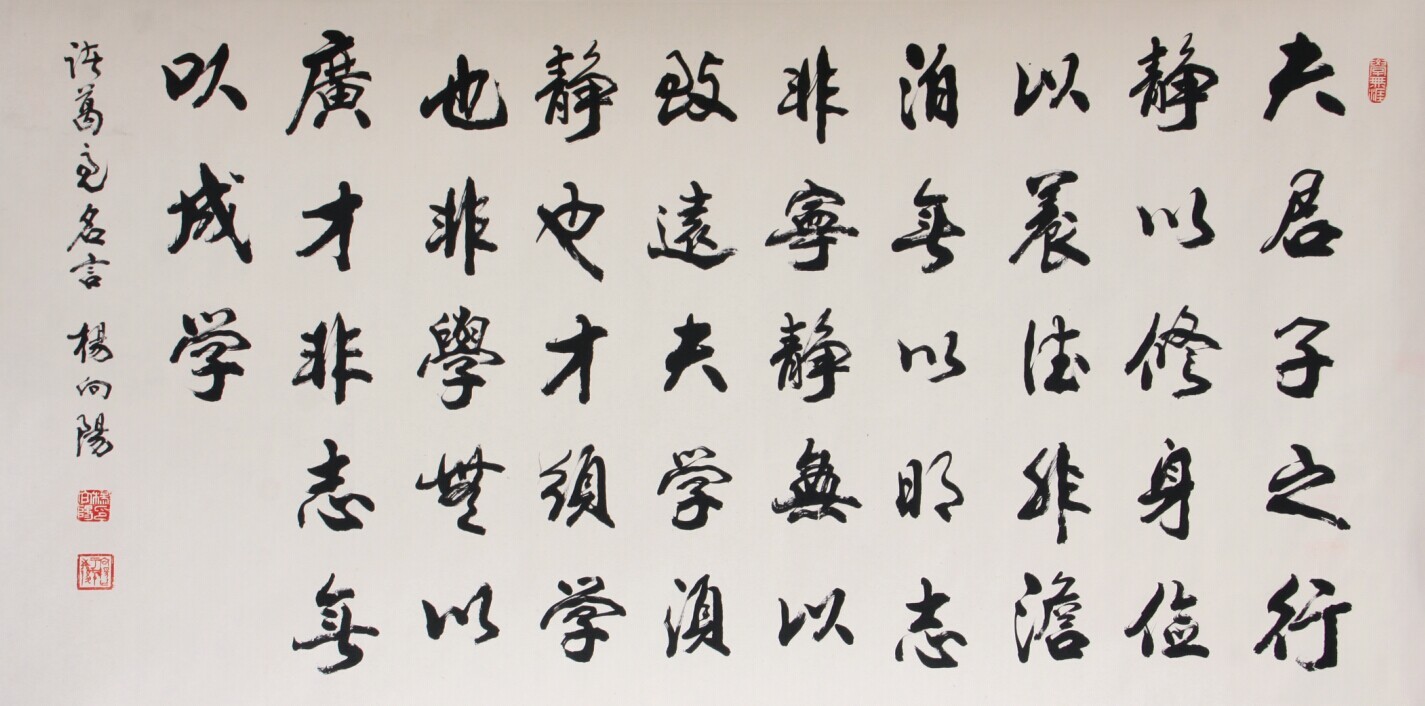 夫君子之行
静以修身俭
以養德非澹
泊無以明志
非寧静無以
致遠夫学須
静也才須学
也非學無以
廣才非志無
以成学
諸葛亮名言 楊向陽